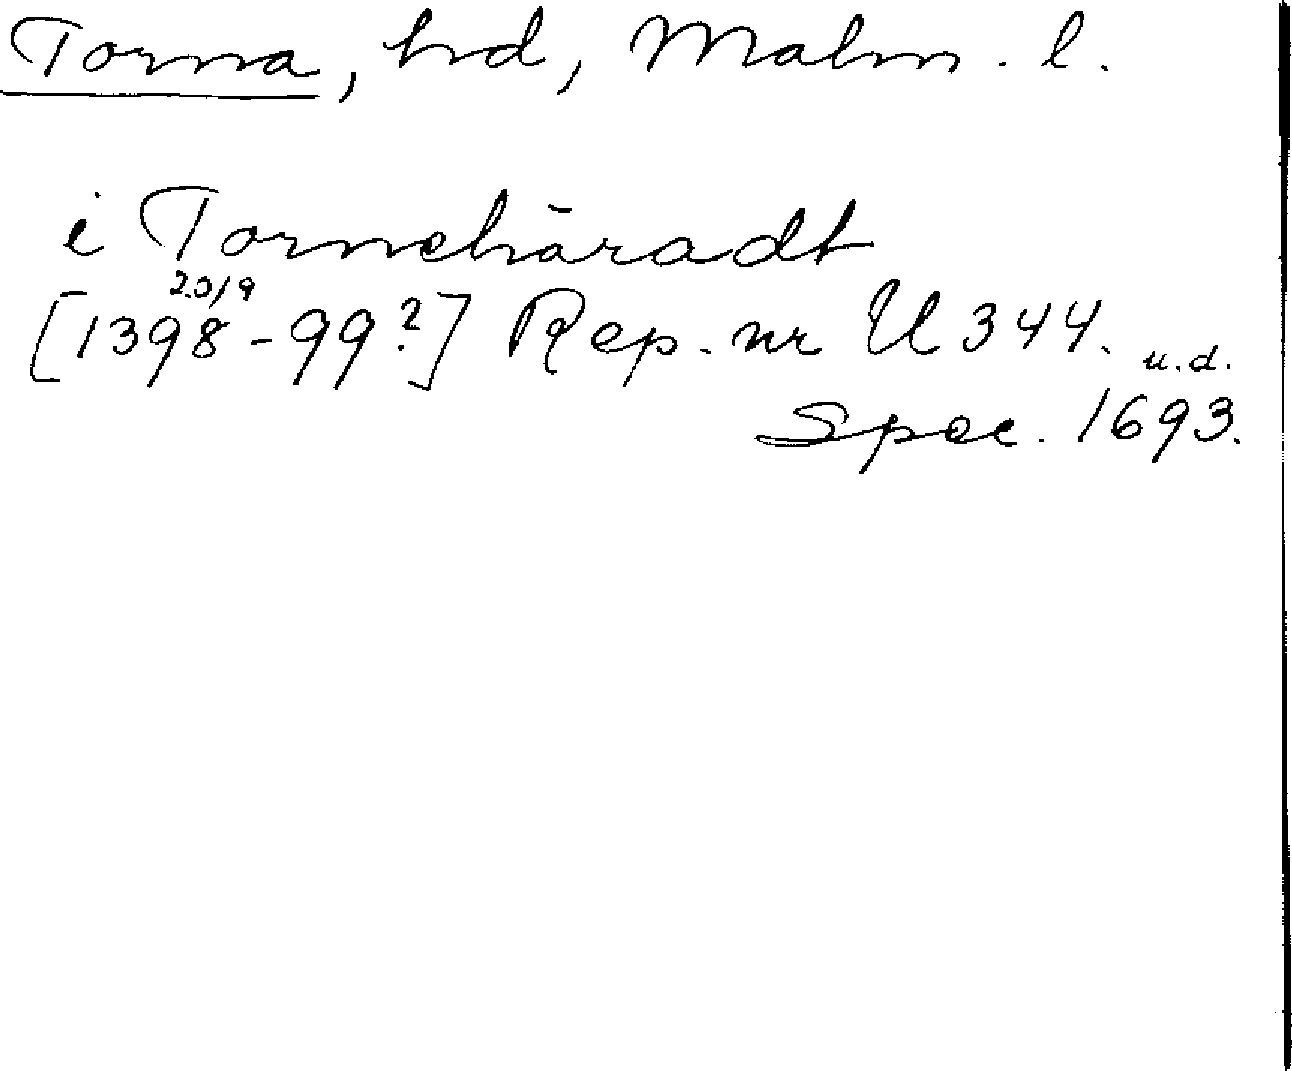 Torna, hd, Malm. l.
i Tornehäradt
20/9
[1398-99?] Rep. nr U 344. u.d.
Spec. 1693.